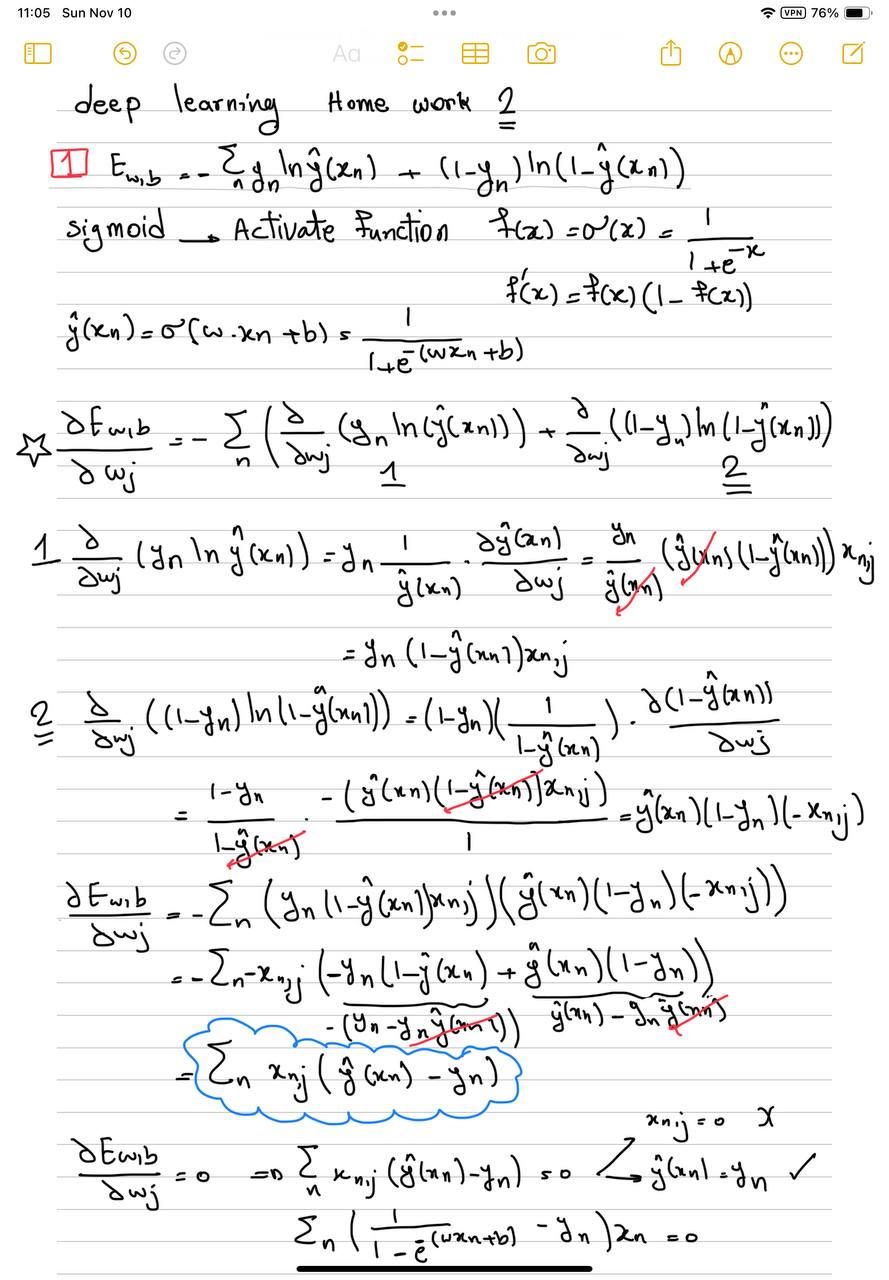 11:05 Sun Nov 10 VPN 76%
Aa
deep learning Home work 2
1 E_{w,b} = - Σ_n y_n ln ŷ(x_n) + (1-y_n) ln(1-ŷ(x_n))
sigmoid → Activate function f(x) = σ(x) = 1/(1+e^{-x})
f'(x) = f(x)(1-f(x))
ŷ(x_n) = σ(w·x_n+b) = 1/(1+e^{-(wx_n+b)})
☆ ∂E_{w,b}/∂w_j = - Σ_n (∂/∂w_j (y_n ln(ŷ(x_n))) + ∂/∂w_j ((1-y_n) ln(1-ŷ(x_n)))
1 2
1 ∂/∂w_j (y_n ln ŷ(x_n)) = y_n 1/ŷ(x_n) · ∂ŷ(x_n)/∂w_j = y_n/ŷ(x_n) (ŷ(x_n)(1-ŷ(x_n))) x_{n,j}
= y_n (1-ŷ(x_n)) x_{n,j}
2 ∂/∂w_j ((1-y_n) ln(1-ŷ(x_n))) = (1-y_n)(1/(1-ŷ(x_n))) · ∂(1-ŷ(x_n))/∂w_j
= (1-y_n)/(1-ŷ(x_n)) · -(ŷ(x_n)(1-ŷ(x_n)) x_{n,j})/1 = ŷ(x_n)(1-y_n)(-x_{n,j})
∂E_{w,b}/∂w_j = - Σ_n (y_n (1-ŷ(x_n)) x_{n,j})(ŷ(x_n)(1-y_n)(-x_{n,j}))
= - Σ_n -x_{n,j} (-y_n(1-ŷ(x_n)) + ŷ(x_n)(1-y_n))
-(y_n - y_n ŷ(x_n)) ŷ(x_n) - y_n ŷ(x_n)
= Σ_n x_{n,j} (ŷ(x_n) - y_n)
x_{n,j} = 0 X
∂E_{w,b}/∂w_j = 0 => Σ_n x_{n,j} (ŷ(x_n) - y_n) = 0 → ŷ(x_n) = y_n ✓
Σ_n (1/(1-e^{-(wx_n+b)}) - y_n) x_n = 0